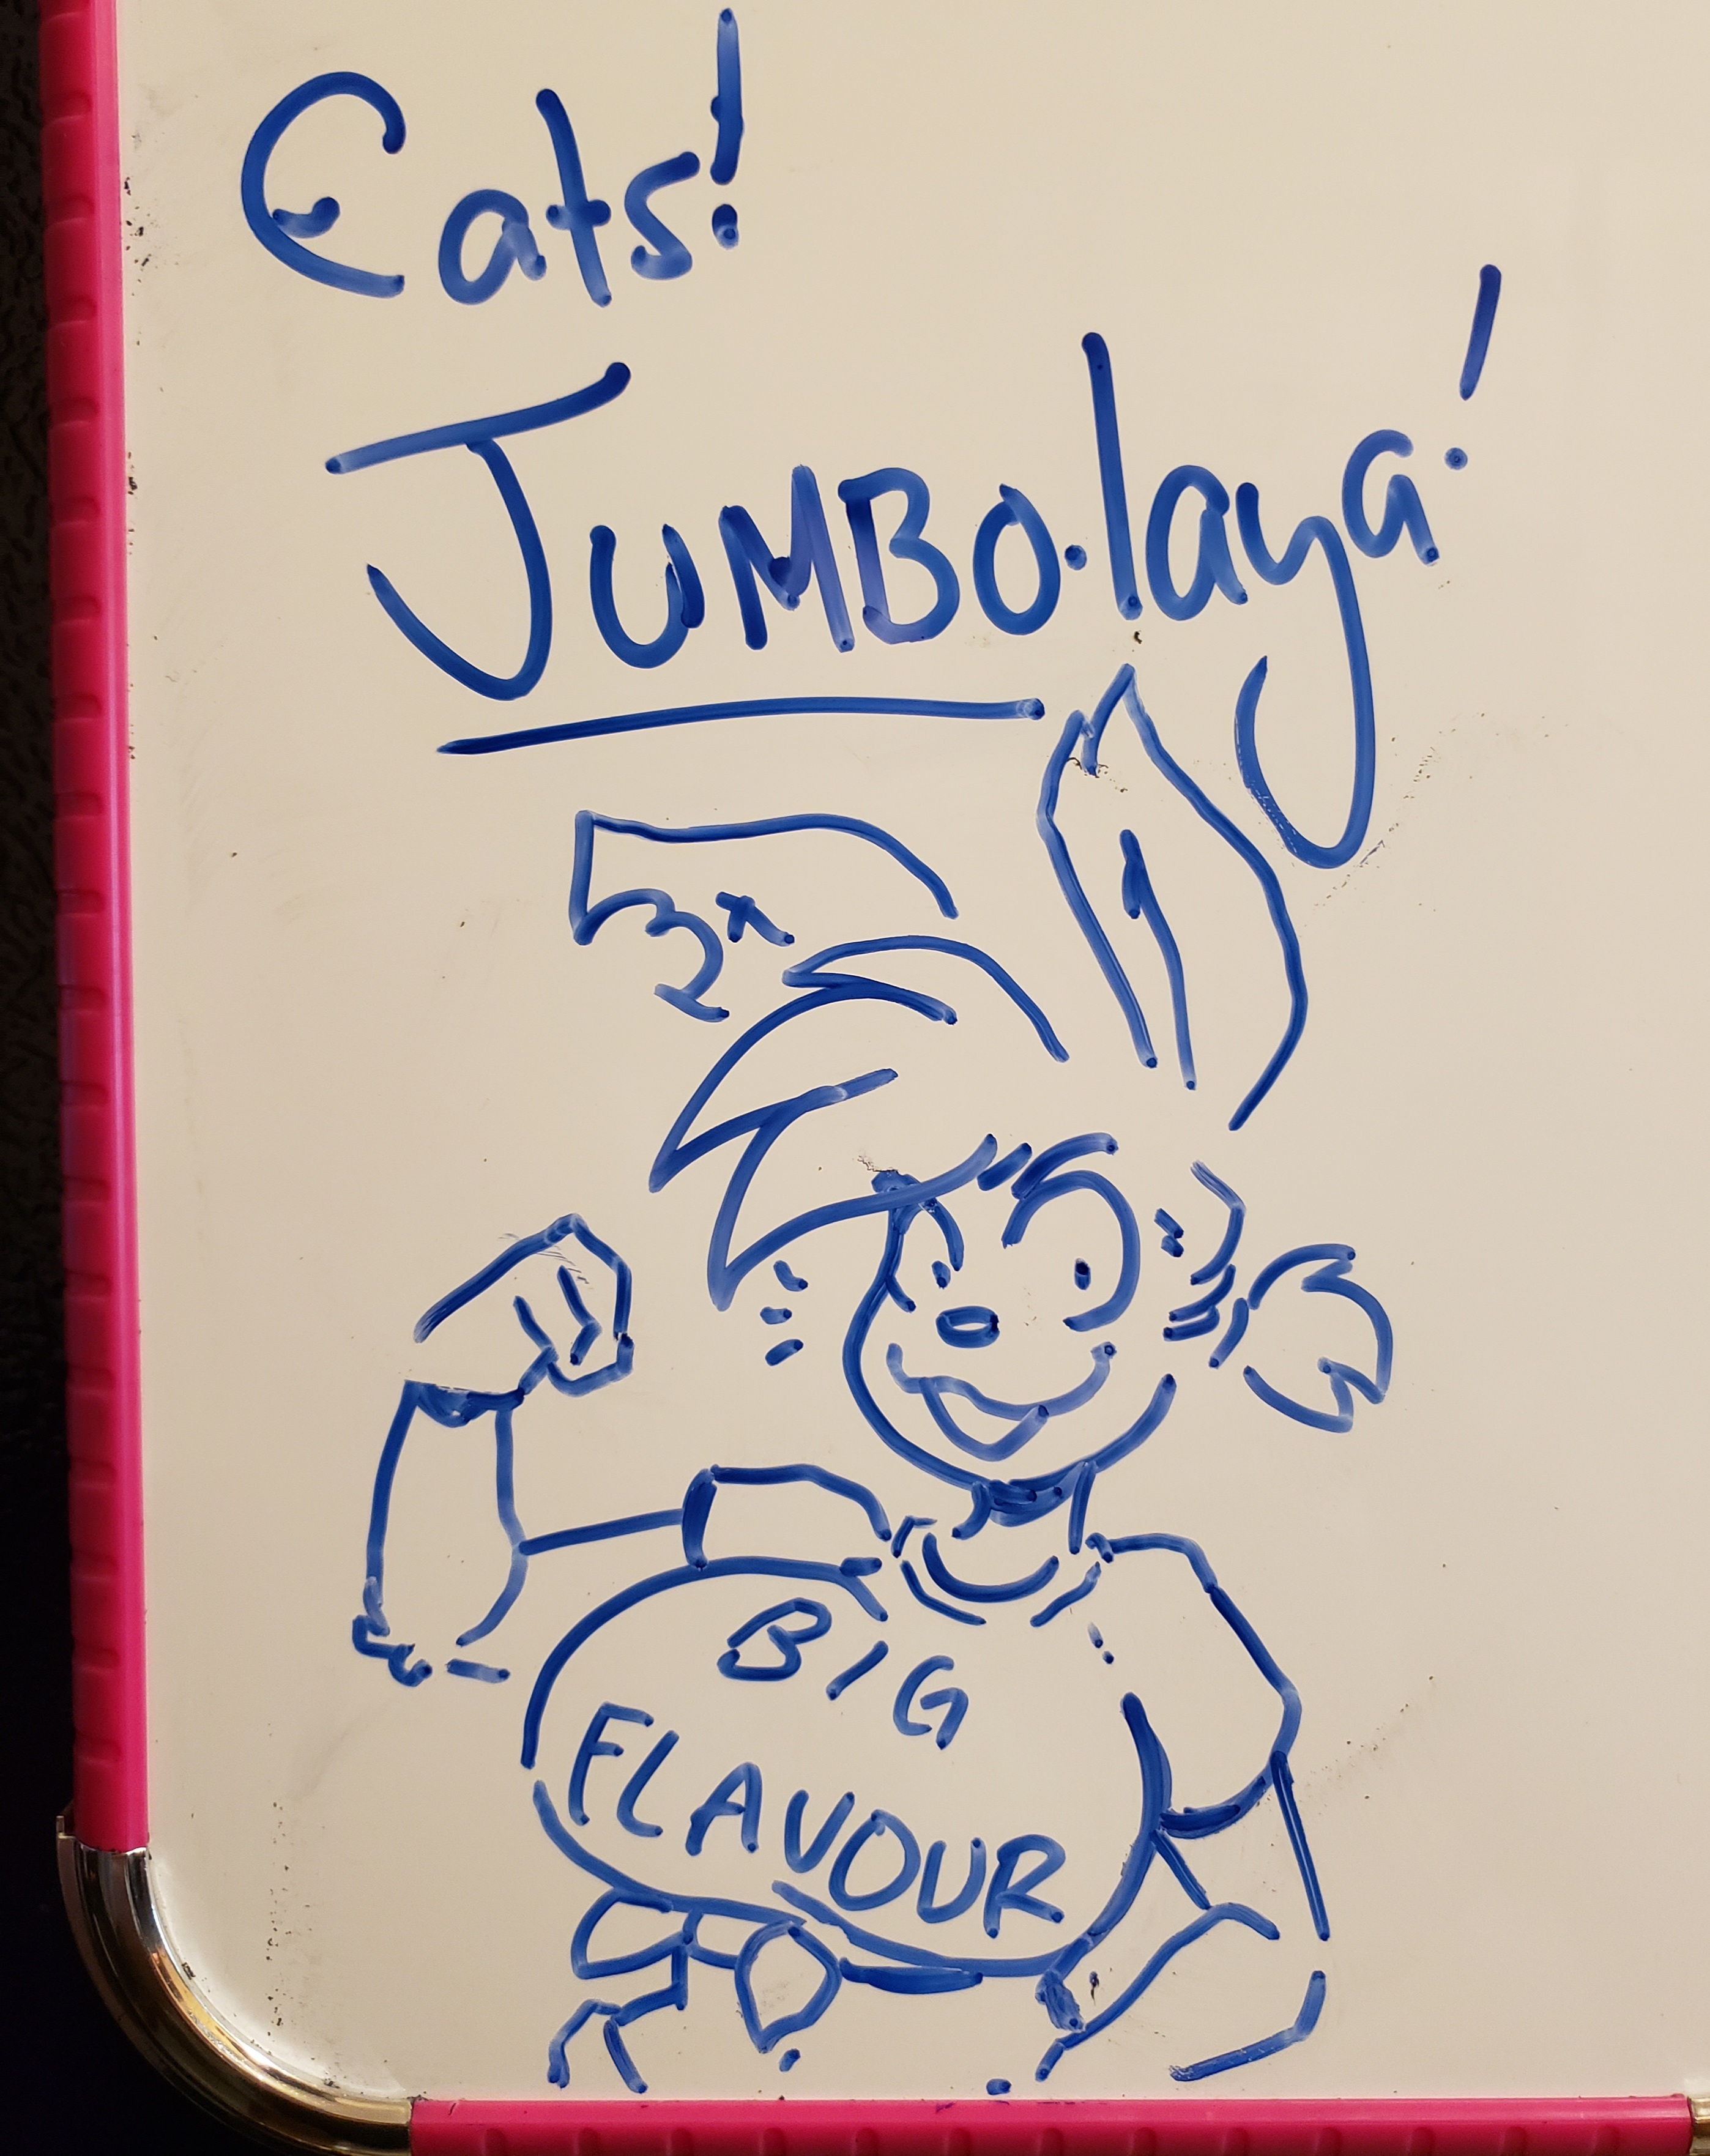 Eats!
JUMBO.laya!
BIG
FLAVOUR